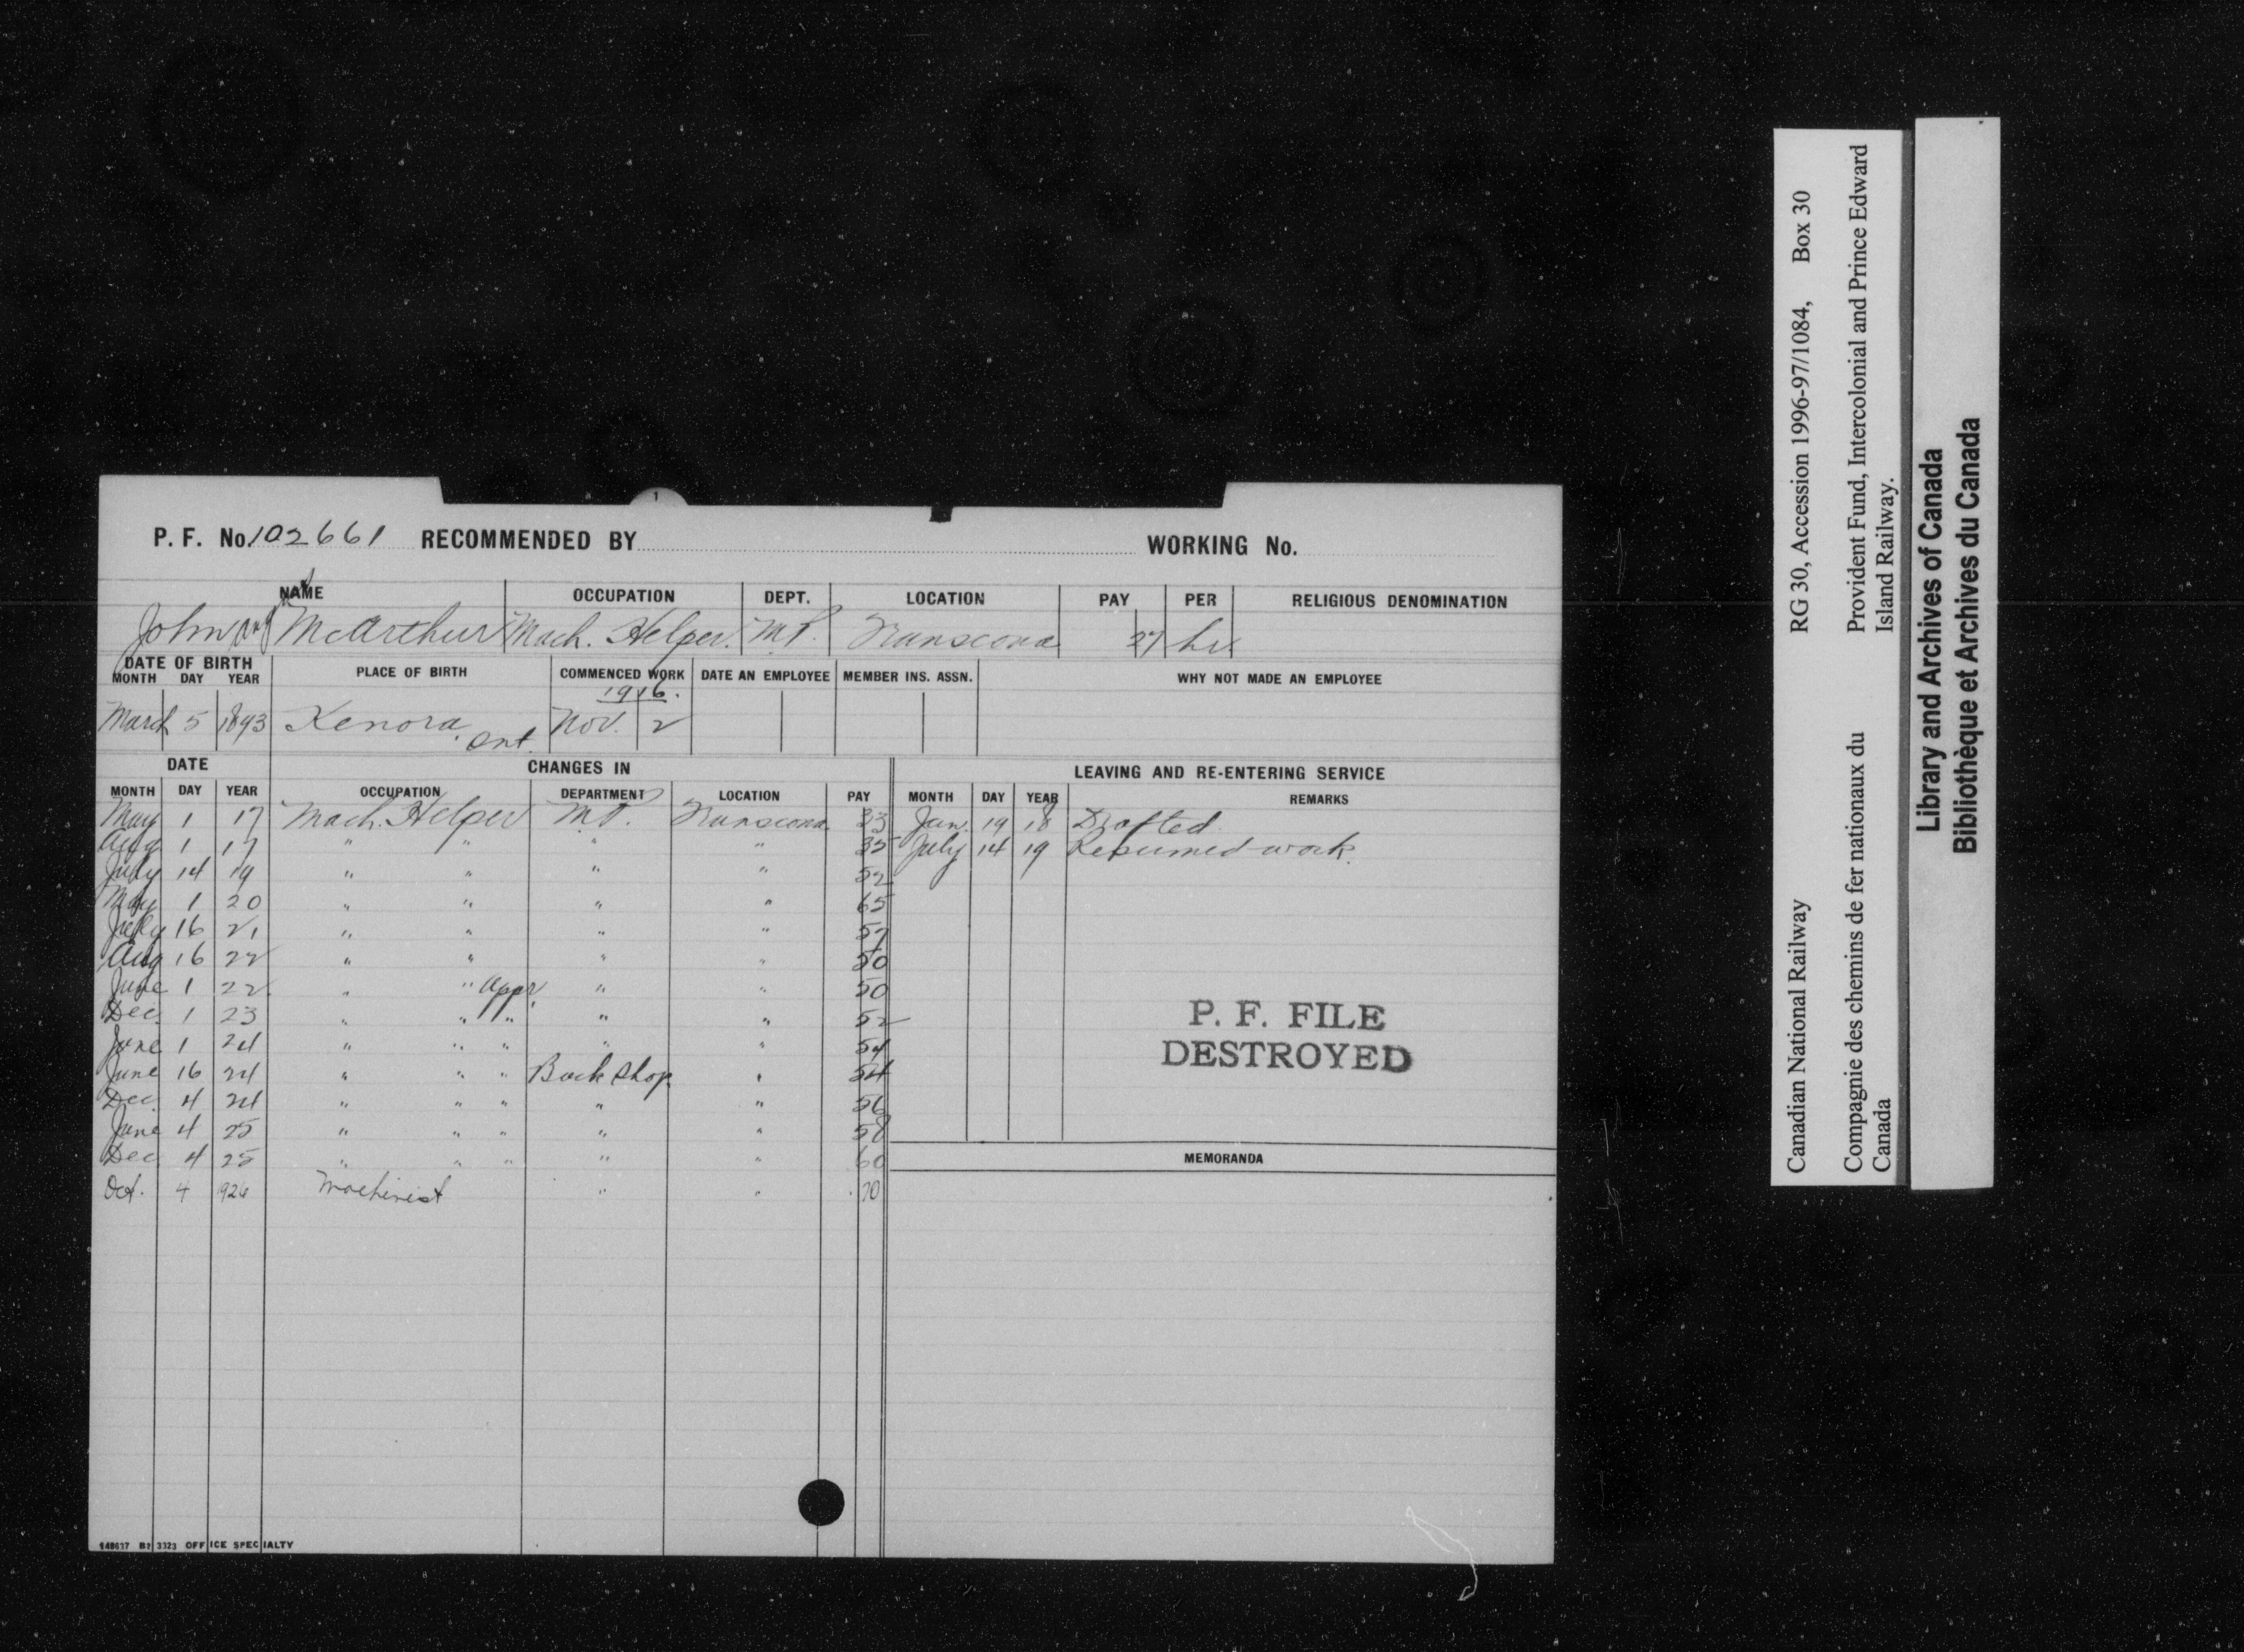 1
P. F. No. 102661 RECOMMENDED BY WORKING No.
NAME OCCUPATION DEPT. LOCATION PAY PER RELIGIOUS DENOMINATION
John McArthur Mach. Helper. M.P. Transcona 27 hr
DATE OF BIRTH PLACE OF BIRTH COMMENCED WORK DATE AN EMPLOYEE MEMBER INS. ASSN. WHY NOT MADE AN EMPLOYEE
MONTH DAY YEAR
1916.
March 5 1893 Kenora Ont. Nov. 2
DATE CHANGES IN LEAVING AND RE-ENTERING SERVICE
MONTH DAY YEAR OCCUPATION DEPARTMENT LOCATION PAY MONTH DAY YEAR REMARKS
May 1 17 Mach. Helper M.P. Transcona 33 Jan. 19 18 Drafted
Aug 1 17 " " " " 35 July 14 19 Resumed work.
July 14 19 " " " " 52
May 1 20 " " " " 65
July 16 21 " " " " 57
Aug 16 22 " " " " 50
June 1 22 " " Appr. " " 50
Dec. 1 23 " " " " " 52
June 1 24 " " " " " 54
June 16 24 " " " Back Shop " 54
Dec. 4 24 " " " " " 56
June 4 25 " " " " " 58
Dec 4 25 " " " " " 60
Oct. 4 1926 Machinist " " 70
P. F. FILE
DESTROYED
MEMORANDA
148637 B2 3323 OFFICE SPECIALTY
Canadian National Railway RG 30, Accession 1996-97/1084, Box 30
Compagnie des chemins de fer nationaux du Canada
Provident Fund, Intercolonial and Prince Edward Island Railway.
Library and Archives of Canada
Bibliothèque et Archives du Canada